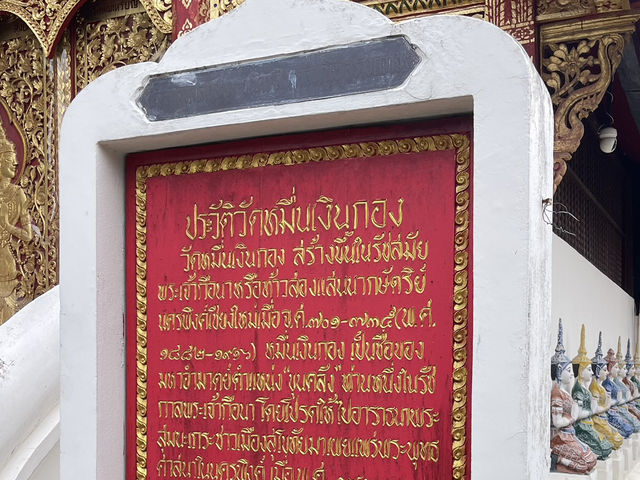 ประวัติวัดหมื่นเงินกอง
วัดหมื่นเงินกอง สร้างขึ้นในรัชสมัย
พระเจ้ากือนาหรือท้าวสองแสนนากษัตริย์
นครพิงค์เชียงใหม่เมื่อ จ.ศ.๗๐๑-๗๓๕(พ.ศ.
๑๘๘๒-๑๙๑๖) หมื่นเงินกอง เป็นชื่อของ
มหาอำมาตย์ตำแหน่ง "ขุนคลัง" ท่านหนึ่งในรัช
กาลพระเจ้ากือนา โดยโปรดให้ไปอาราธนาพระ
สุมนะเถระ ชาวเมืองสุโขทัยมาเผยแพร่พระพุทธ
ศาสนาในนครพิงค์ เมื่อ พ.ศ.